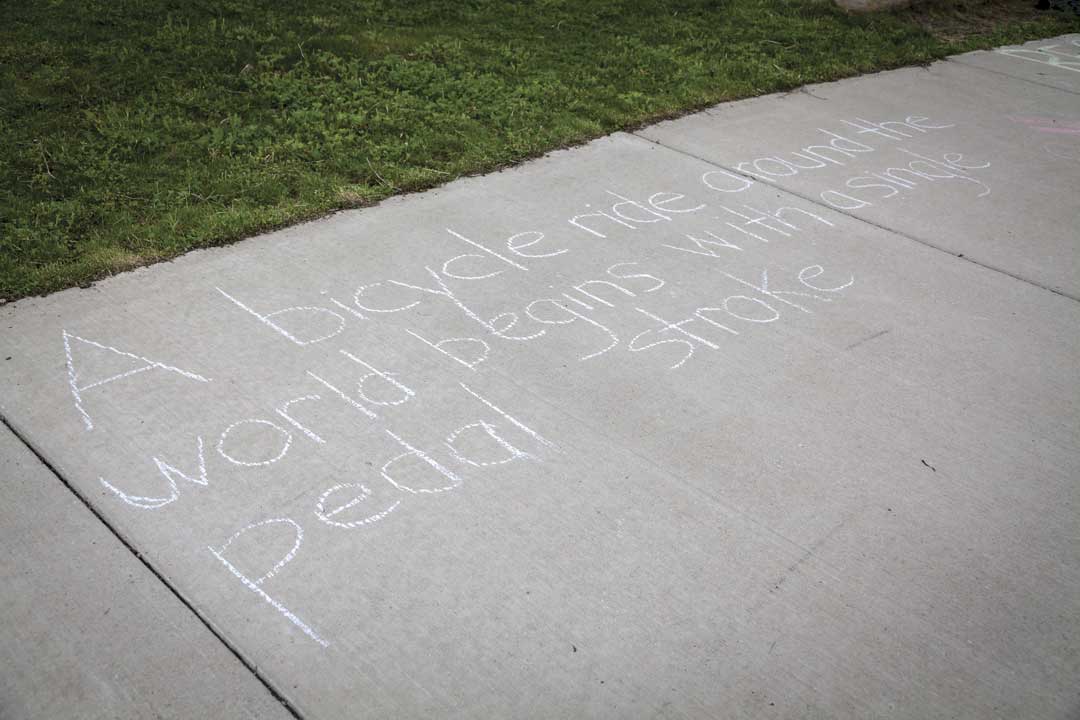 A bicycle ride around the
world begins with a single
pedal stroke